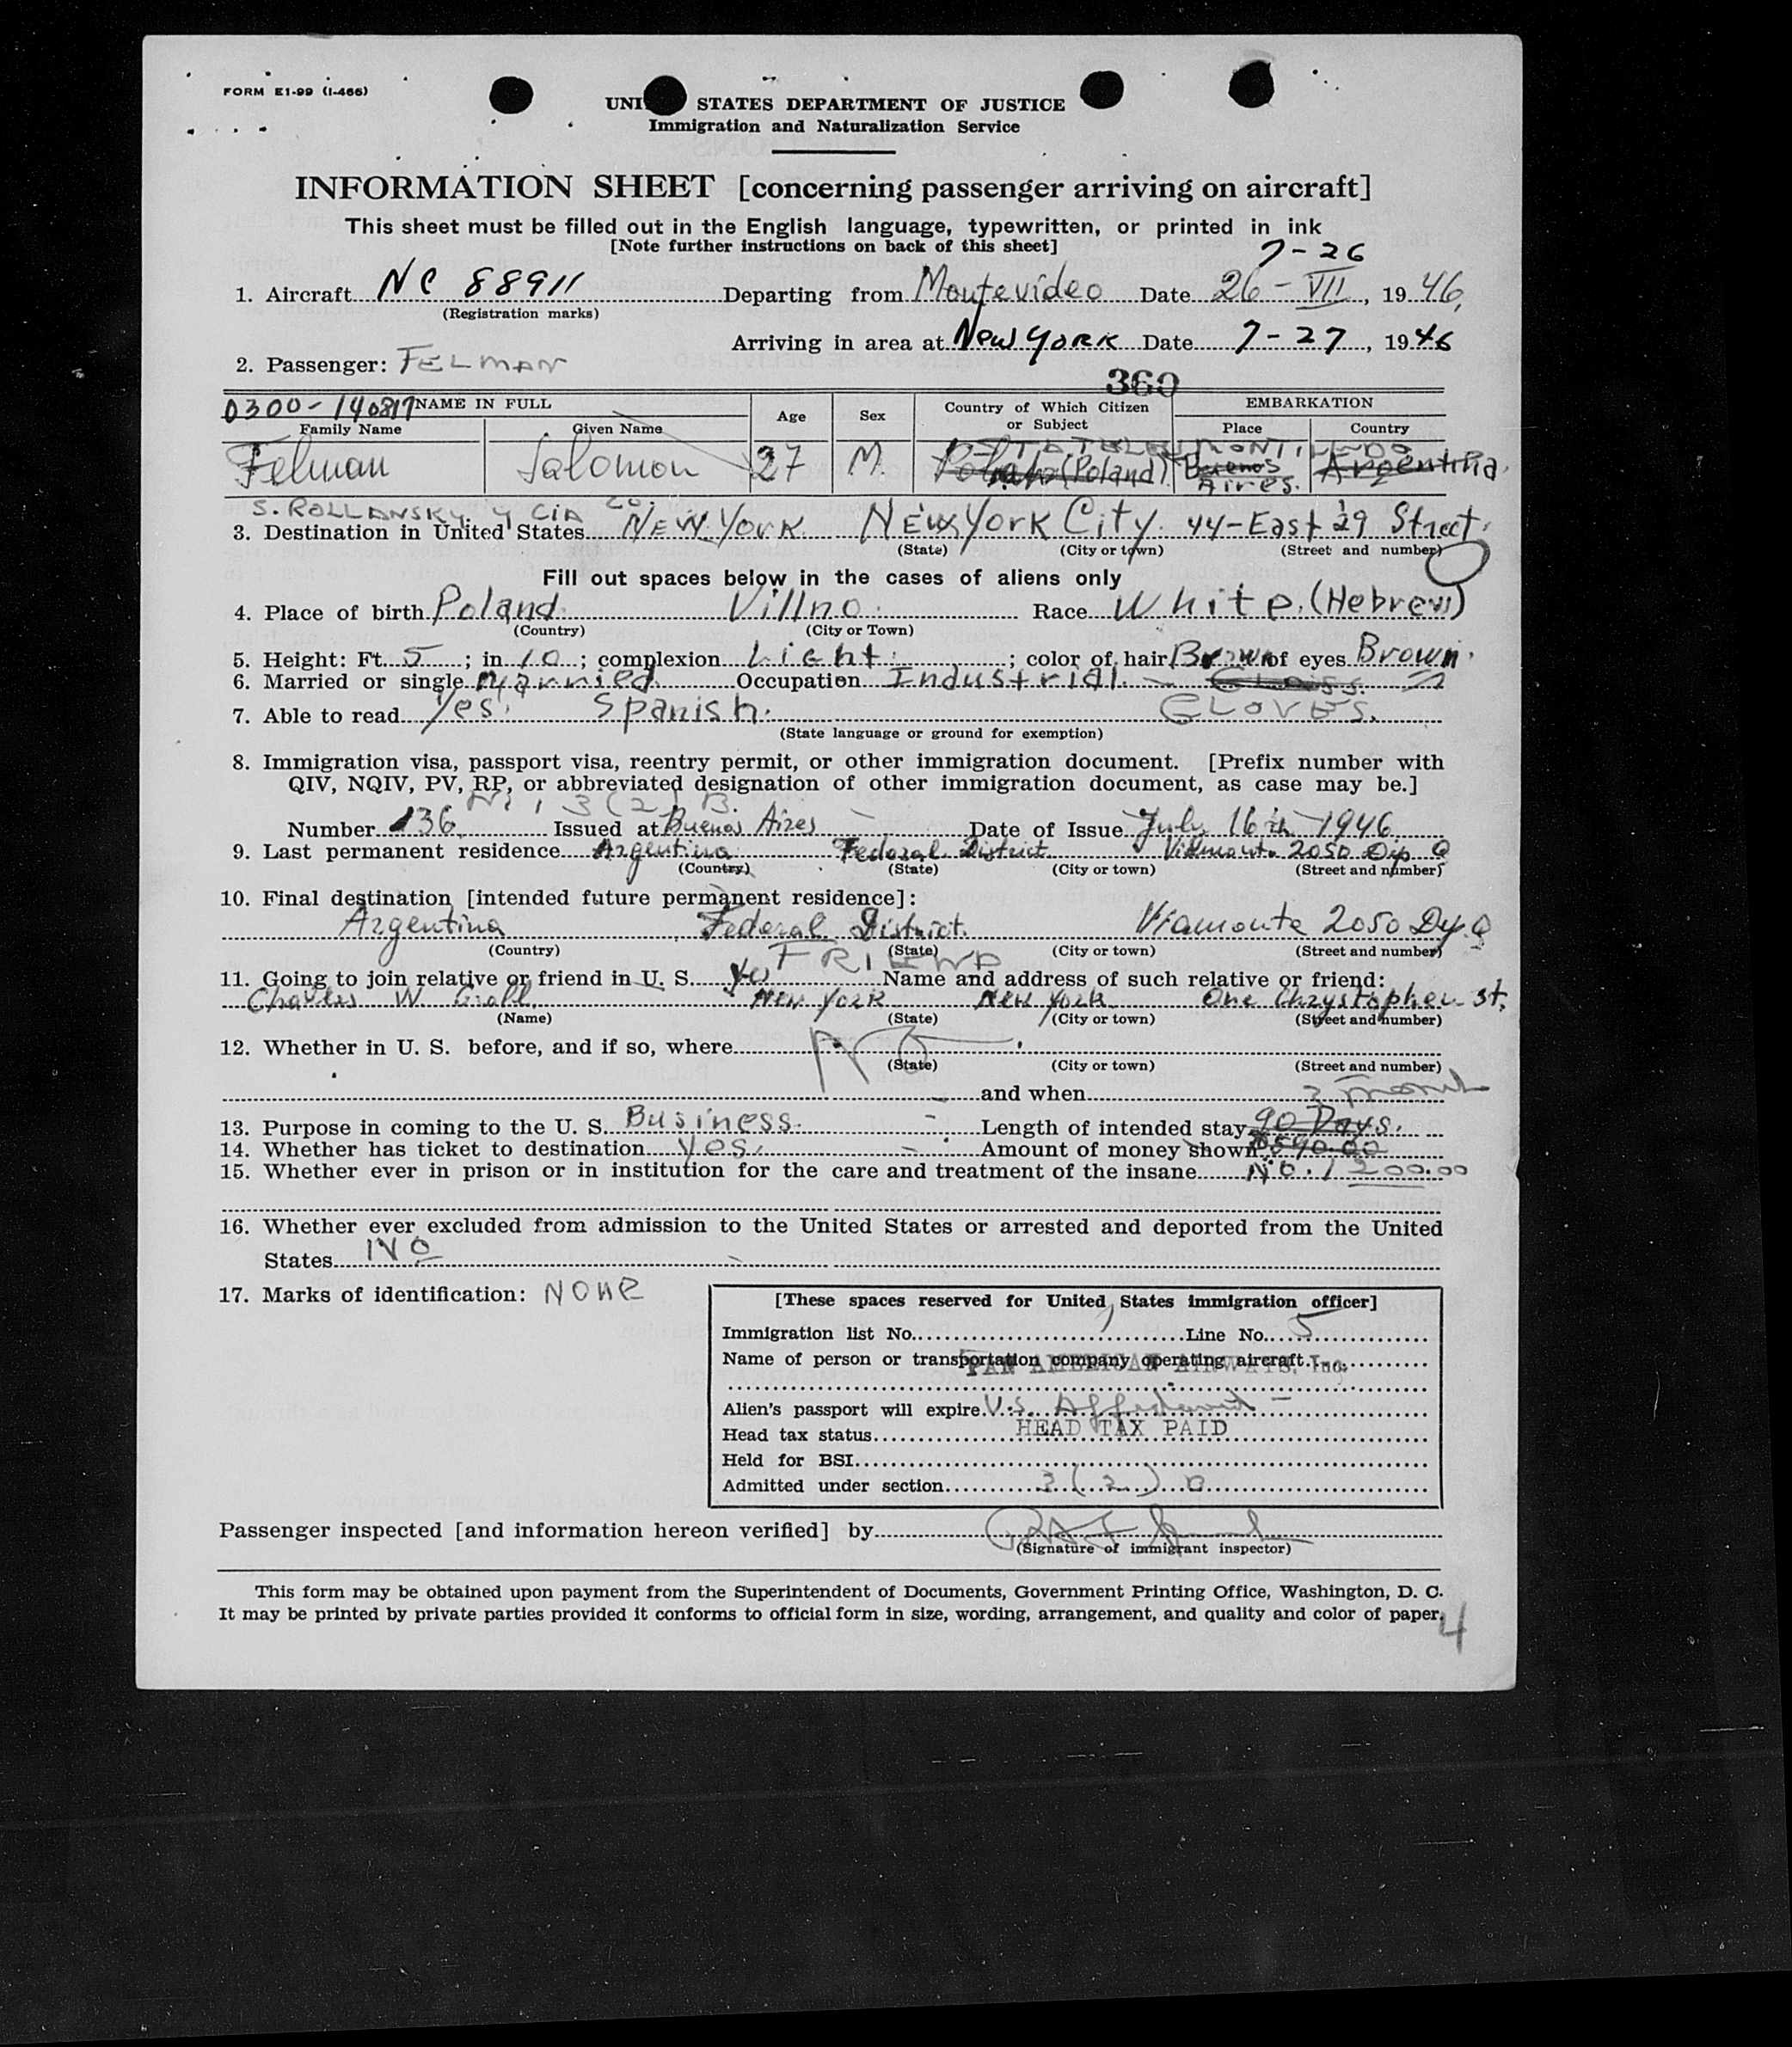 FORM E1-99 (I-466)
UNI STATES DEPARTMENT OF JUSTICE
Immigration and Naturalization Service
INFORMATION SHEET [concerning passenger arriving on aircraft]
This sheet must be filled out in the English language, typewritten, or printed in ink
[Note further instructions on back of this sheet]
7-26
1. Aircraft NC 88911 Departing from Montevideo Date 26-VII, 1946
(Registration marks)
Arriving in area at New York Date 7-27, 1946
2. Passenger: FELMAN
360
0300-140817 NAME IN FULL Age Sex Country of Which Citizen or Subject EMBARKATION
Family Name Given Name Place Country
STATELESS MONTIVEDO
Felman Salomon 27 M. (Poland) Buenos Aires. Argentina.
S. ROLLANSKY y CIA Co.
3. Destination in United States NEW YORK New York City. 44-East 29 Street.
(State) (City or town) (Street and number)
Fill out spaces below in the cases of aliens only
4. Place of birth Poland. Villno. Race White. (Hebrew)
(Country) (City or Town)
5. Height: Ft. 5; in 10; complexion Light.; color of hair Brown of eyes Brown.
6. Married or single Married. Occupation Industrial. - Glass
7. Able to read Yes. Spanish. GLOVES.
(State language or ground for exemption)
8. Immigration visa, passport visa, reentry permit, or other immigration document. [Prefix number with
QIV, NQIV, PV, RP, or abbreviated designation of other immigration document, as case may be.]
3(2) B.
Number 136 Issued at Buenos Aires Date of Issue July 16th 1946
9. Last permanent residence Argentina Federal District Viamonte 2050 Dp Q
(Country) (State) (City or town) (Street and number)
10. Final destination [intended future permanent residence]:
Argentina Federal District. Viamonte 2050 Dp. Q
(Country) (State) (City or town) (Street and number)
FRIEND
11. Going to join relative or friend in U. S. Yes Name and address of such relative or friend:
Charles W. New York New York One Chrystopher St.
(Name) (State) (City or town) (Street and number)
12. Whether in U. S. before, and if so, where NO
(State) (City or town) (Street and number)
and when 3 month
13. Purpose in coming to the U. S. Business. Length of intended stay 90 Days.
14. Whether has ticket to destination Yes. Amount of money shown $540.00
15. Whether ever in prison or in institution for the care and treatment of the insane No. 1200.00
16. Whether ever excluded from admission to the United States or arrested and deported from the United
States NO
17. Marks of identification: NONE
[These spaces reserved for United States immigration officer]
Immigration list No. 1 Line No. 5
Name of person or transportation company operating aircraft
PAN AMERICAN AIRWAYS, Inc.
Alien's passport will expire U.S. Affidavit
Head tax status HEAD TAX PAID
Held for BSI
Admitted under section 3(2) B
Passenger inspected [and information hereon verified] by
(Signature of immigrant inspector)
This form may be obtained upon payment from the Superintendent of Documents, Government Printing Office, Washington, D. C.
It may be printed by private parties provided it conforms to official form in size, wording, arrangement, and quality and color of paper.
4